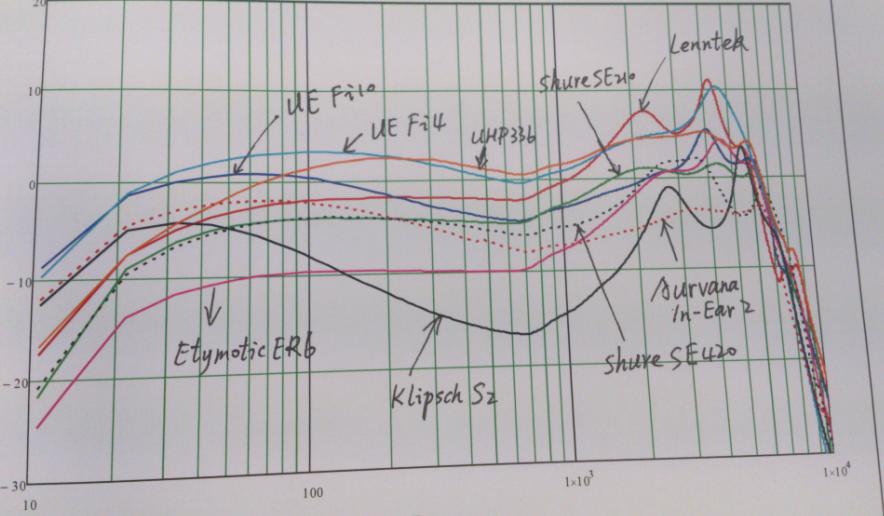 20
Lenntek
Shure SE210
10
UE Fi10
UE Fi4
UHP336
0
-10
Aurvana
In-Ear 2
Etymotic ER6
Shure SE420
-20
Klipsch S2
-30
10
100
1×10³
1×10⁴